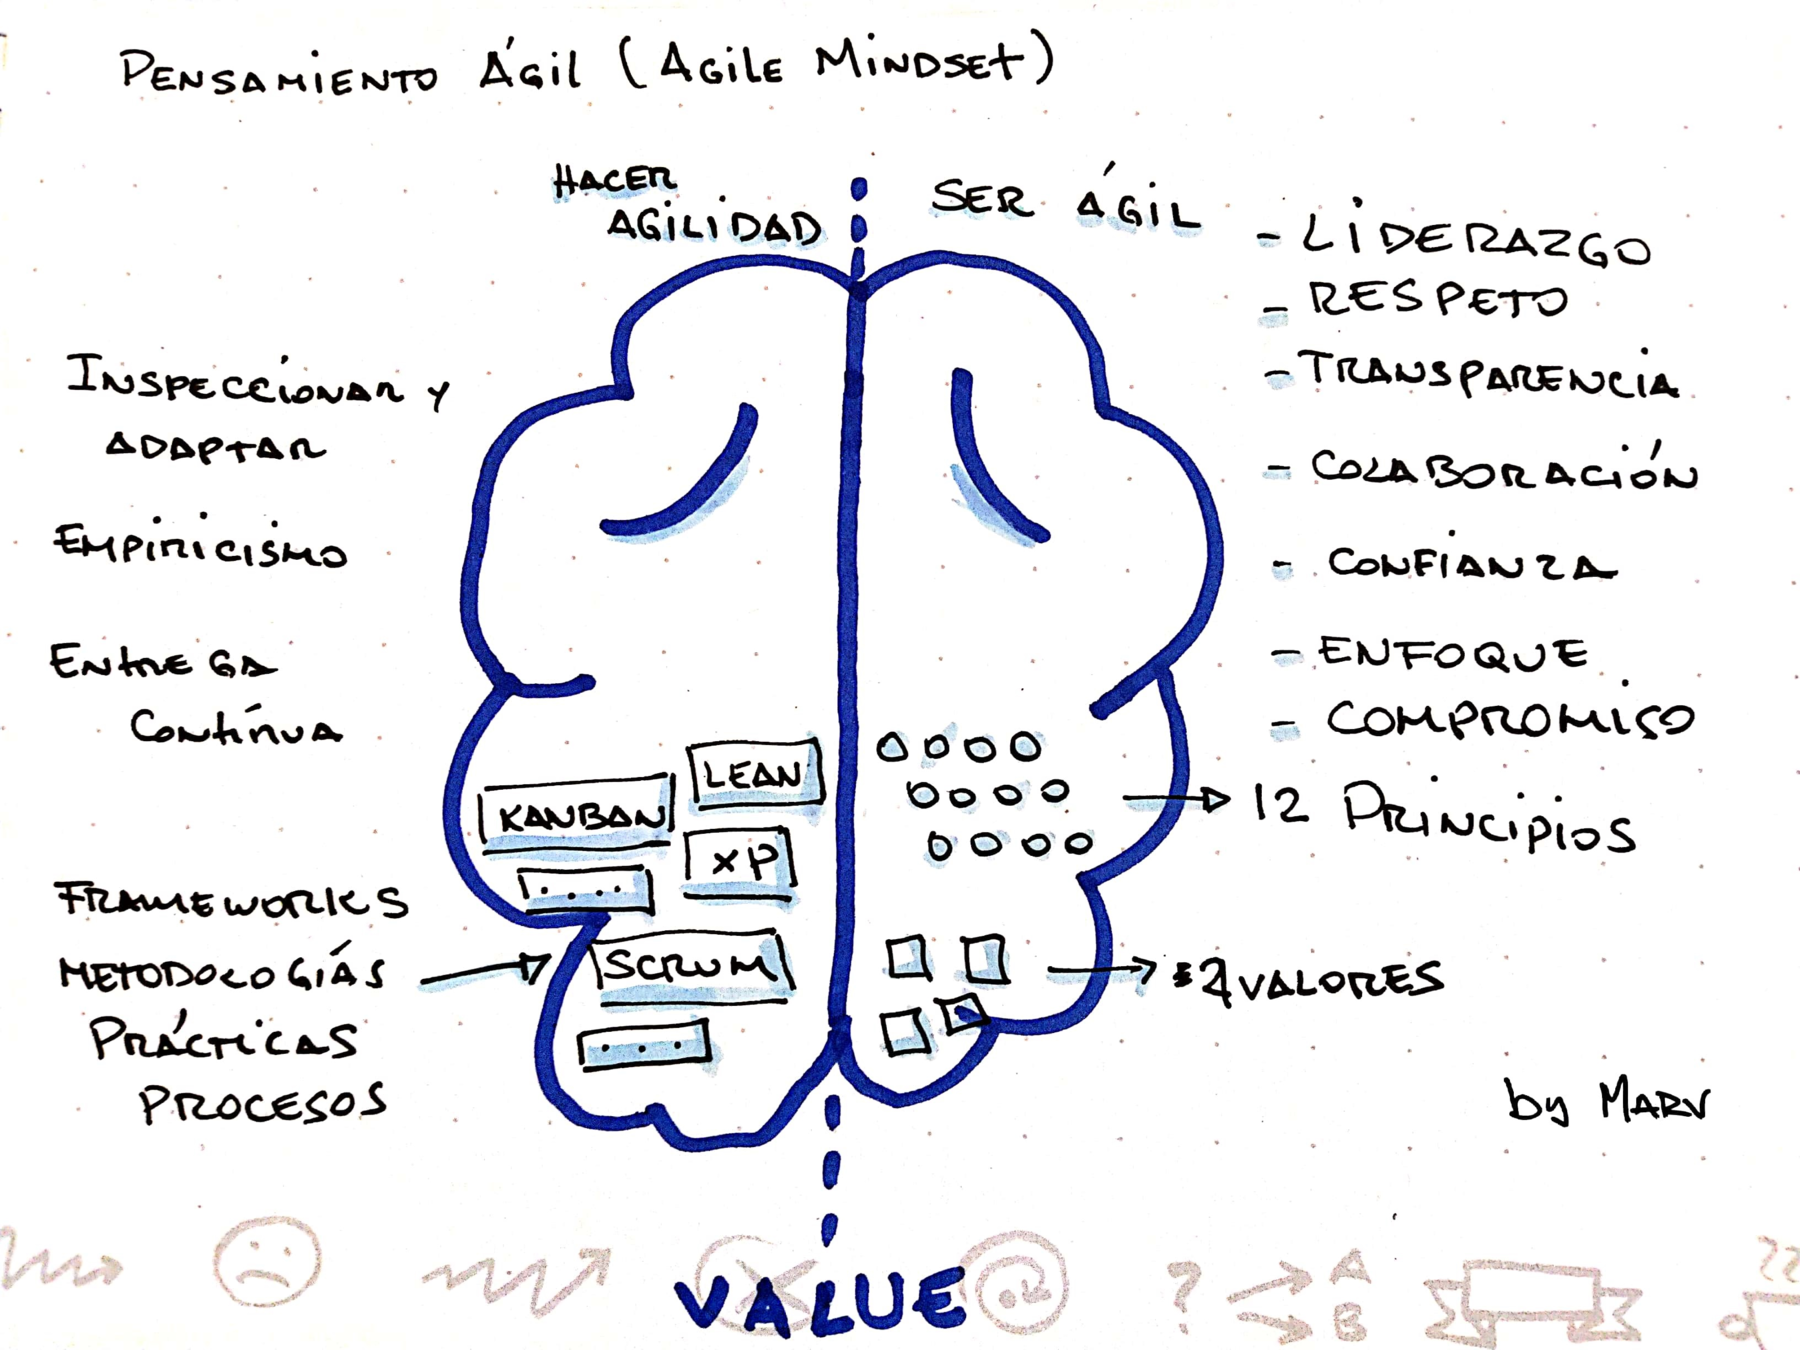 PENSAMIENTO ÁGIL (AGILE MINDSET)
HACER
AGILIDAD
SER ÁGIL
- LIDERAZGO
- RESPETO
- TRANSPARENCIA
- COLABORACIÓN
- CONFIANZA
- ENFOQUE
- COMPROMISO
INSPECCIONAR Y
ADAPTAR
EMPIRICISMO
ENTREGA
CONTÍNUA
KANBAN
LEAN
XP
....
SCRUM
...
FRAMEWORKS
METODOLOGÍAS
PRÁCTICAS
PROCESOS
12 PRINCIPIOS
VALORES
by MARV
VALUE
?
A
B